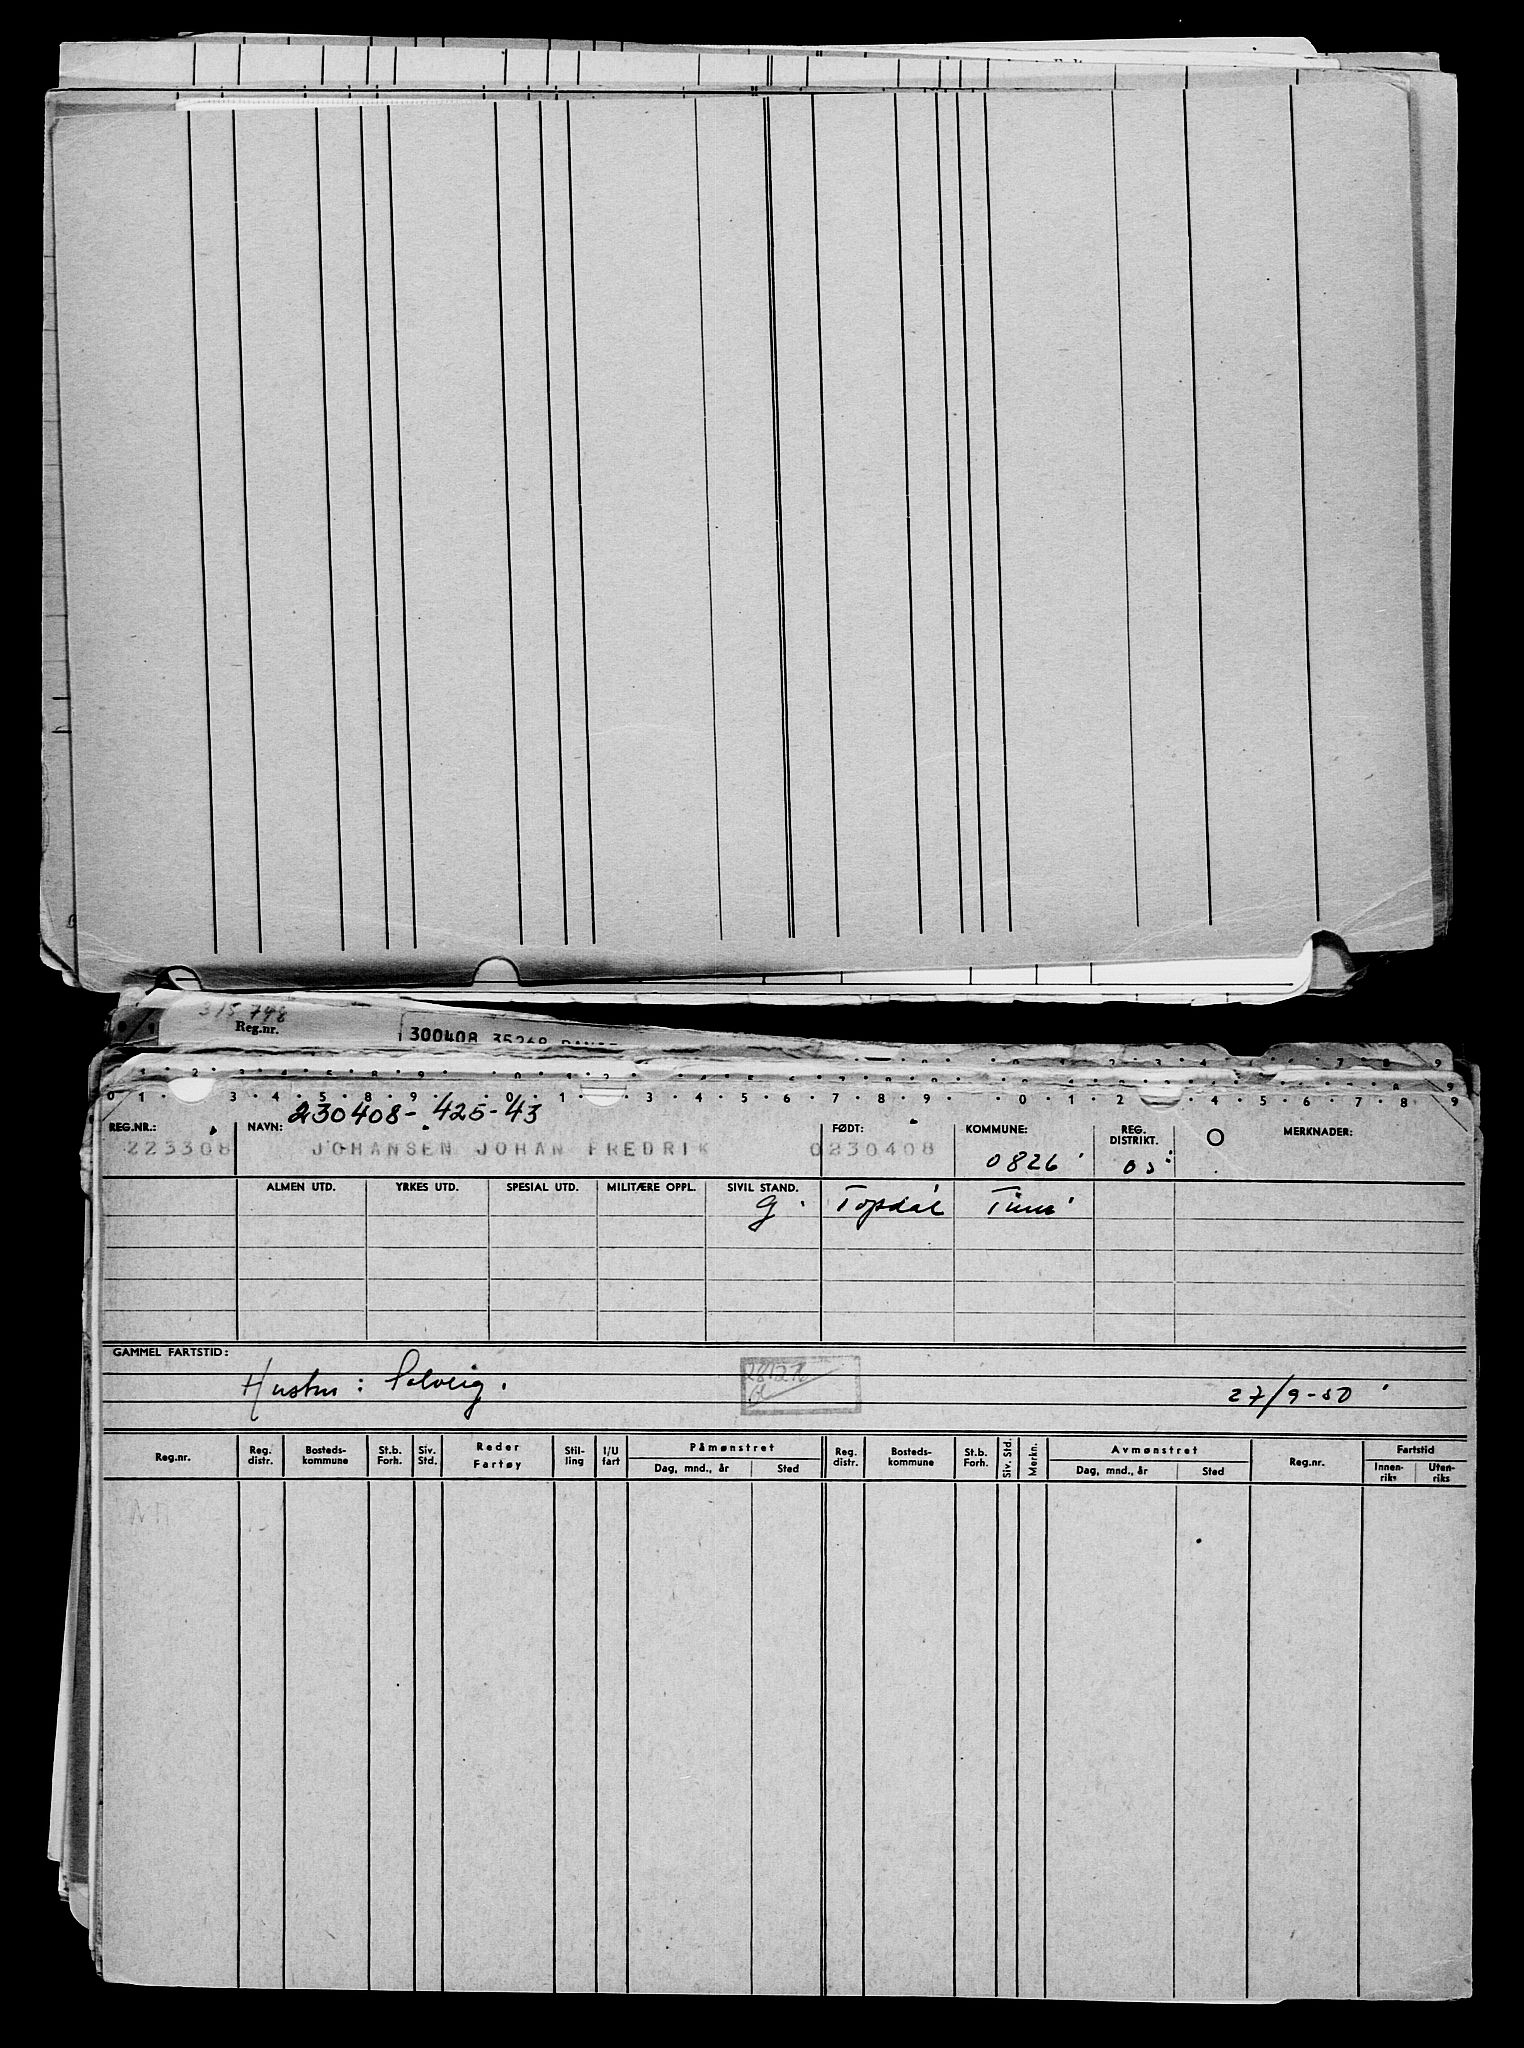 315 748
Reg.nr.
300408 35268
0 1 . 3 . 4 . 5 . 8 . 9 . 0 . 1 . 3 . 4 . 5 . 6 . 7 . 8 . 9 . 0 . 1 . 2 . 4 . 5 . 6 . 7 . 8 . 9
230408-425-43
REG.NR.: NAVN: FØDT: KOMMUNE: REG. DISTRIKT. MERKNADER:
223308 JOHANSEN JOHAN FREDRIK 0230408 0826
ALMEN UTD. YRKES UTD. SPESIAL UTD. MILITÆRE OPPL. SIVIL STAND.
g. Topdal
GAMMEL FARTSTID:
Hustru: Solveig.
27/9-50
Reg.nr. Reg. distr. Bosteds-kommune St.b. Forh. Siv. Std. Reder Fartøy Stil-ling I/U fart Påmønstret Dag, mnd., år Sted Reg. distr. Bosteds-kommune St.b. Forh. Siv. Std. Merkn. Avmønstret Dag, mnd., år Sted Reg.nr. Fartstid Innen-riks Uten-riks